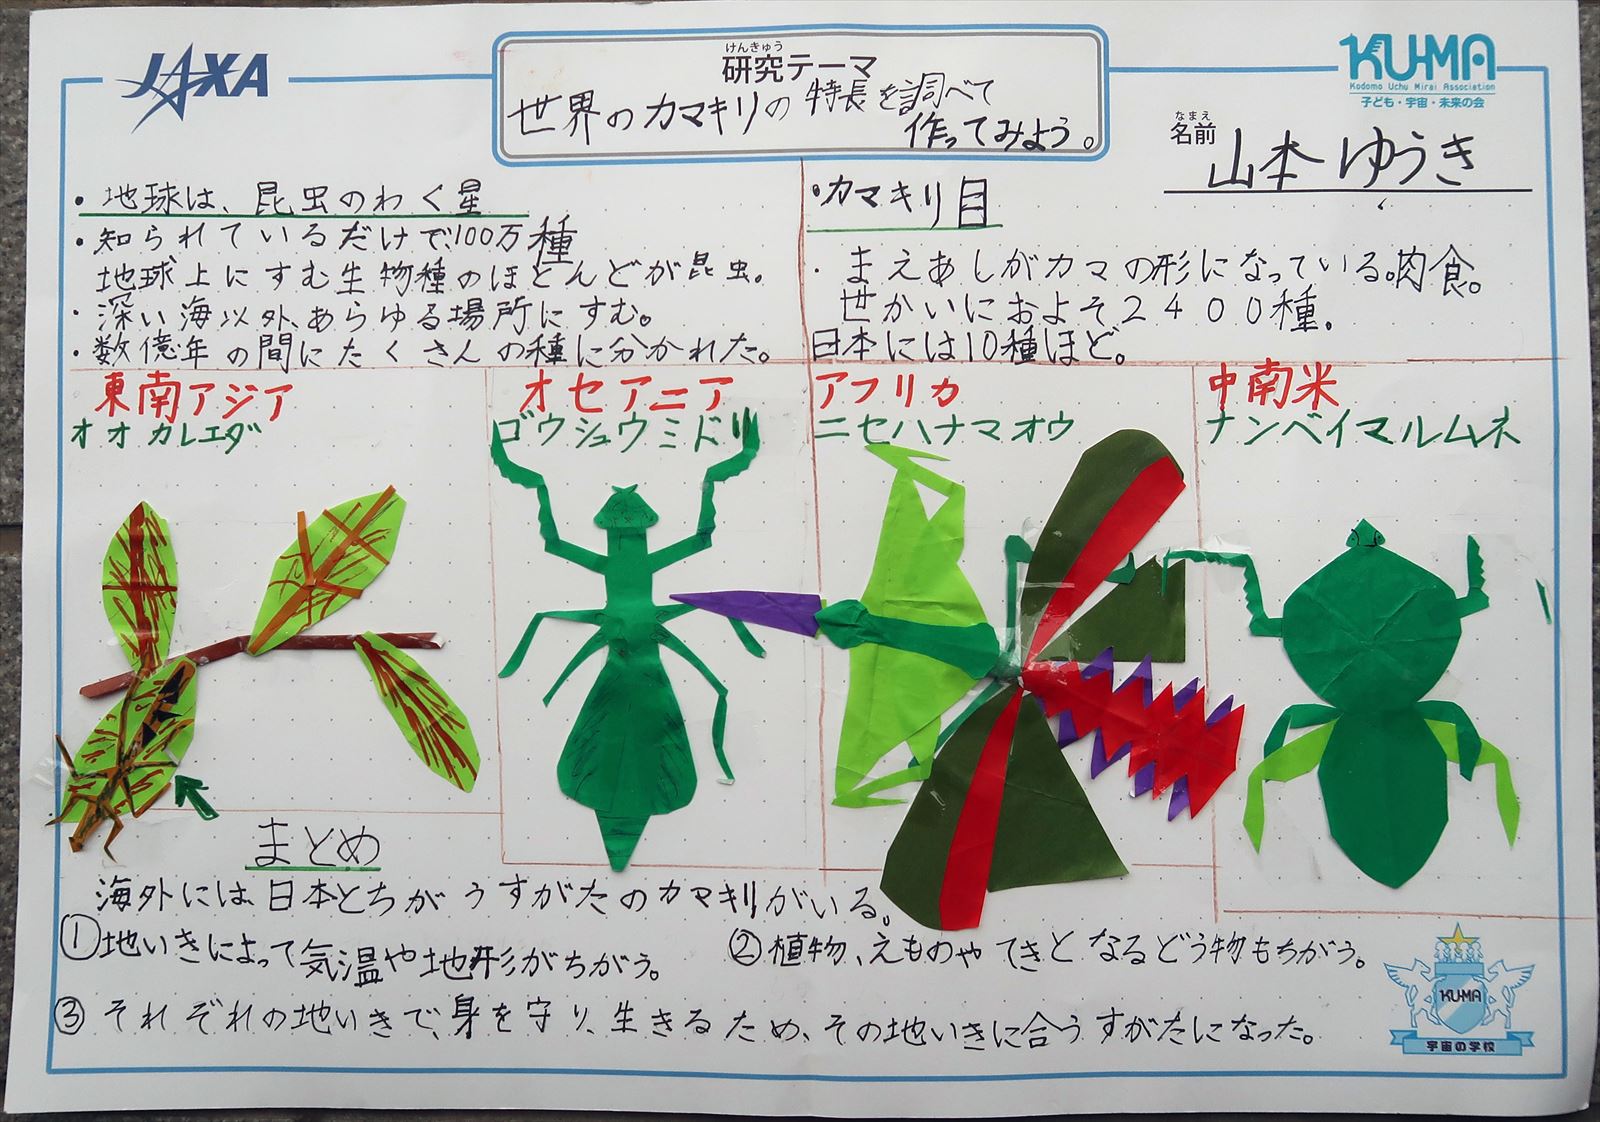 JAXA
けんきゅう
研究テーマ
世界のカマキリの特長を調べて
作ってみよう。
KU-MA
Kodomo Uchu Mirai Association
子ども・宇宙・未来の会
なまえ
名前
山本ゆうき
・地球は、昆虫のわく星
・知られているだけで、100万種
地球上にすむ生物種のほとんどが昆虫。
・深い海以外、あらゆる場所にすむ。
・数億年の間にたくさんの種に分かれた。
・カマキリ目
・まえあしがカマの形になっている。肉食。
世かいにおよそ2400種。
日本には10種ほど。
東南アジア
オオカレエダ
オセアニア
ゴウシュウミドリ
アフリカ
ニセハナマオウ
中南米
ナンベイマルムネ
まとめ
海外には、日本とちがうすがたのカマキリがいる。
①地いきによって気温や地形がちがう。
②植物、えものやてきとなるどう物もちがう。
③それぞれの地いきで、身を守り、生きるため、その地いきに合うすがたになった。
KU-MA
宇宙の学校